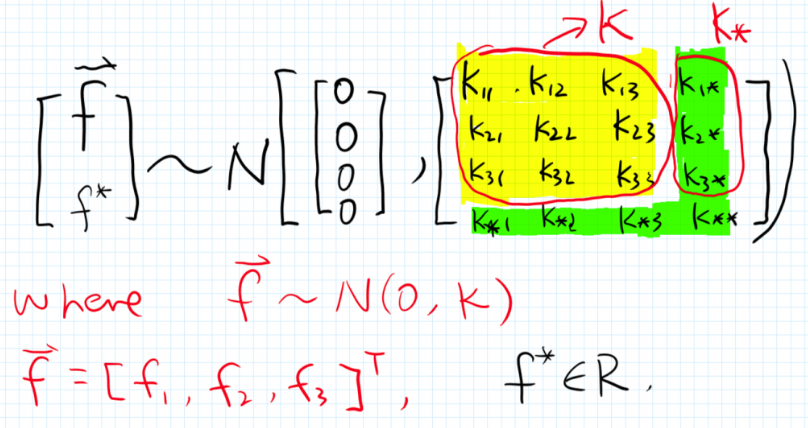 → K K*
[f⃗ f*] ~ N [[0 0 0 0], [K11 . K12 K13 K1*
K21 K22 K23 K2*
K31 K32 K32 K3*
K*1 K*2 K*3 K**]])
where f⃗ ~ N(0, K)
f⃗ = [f1, f2, f3]ᵀ, f* ∈ R.